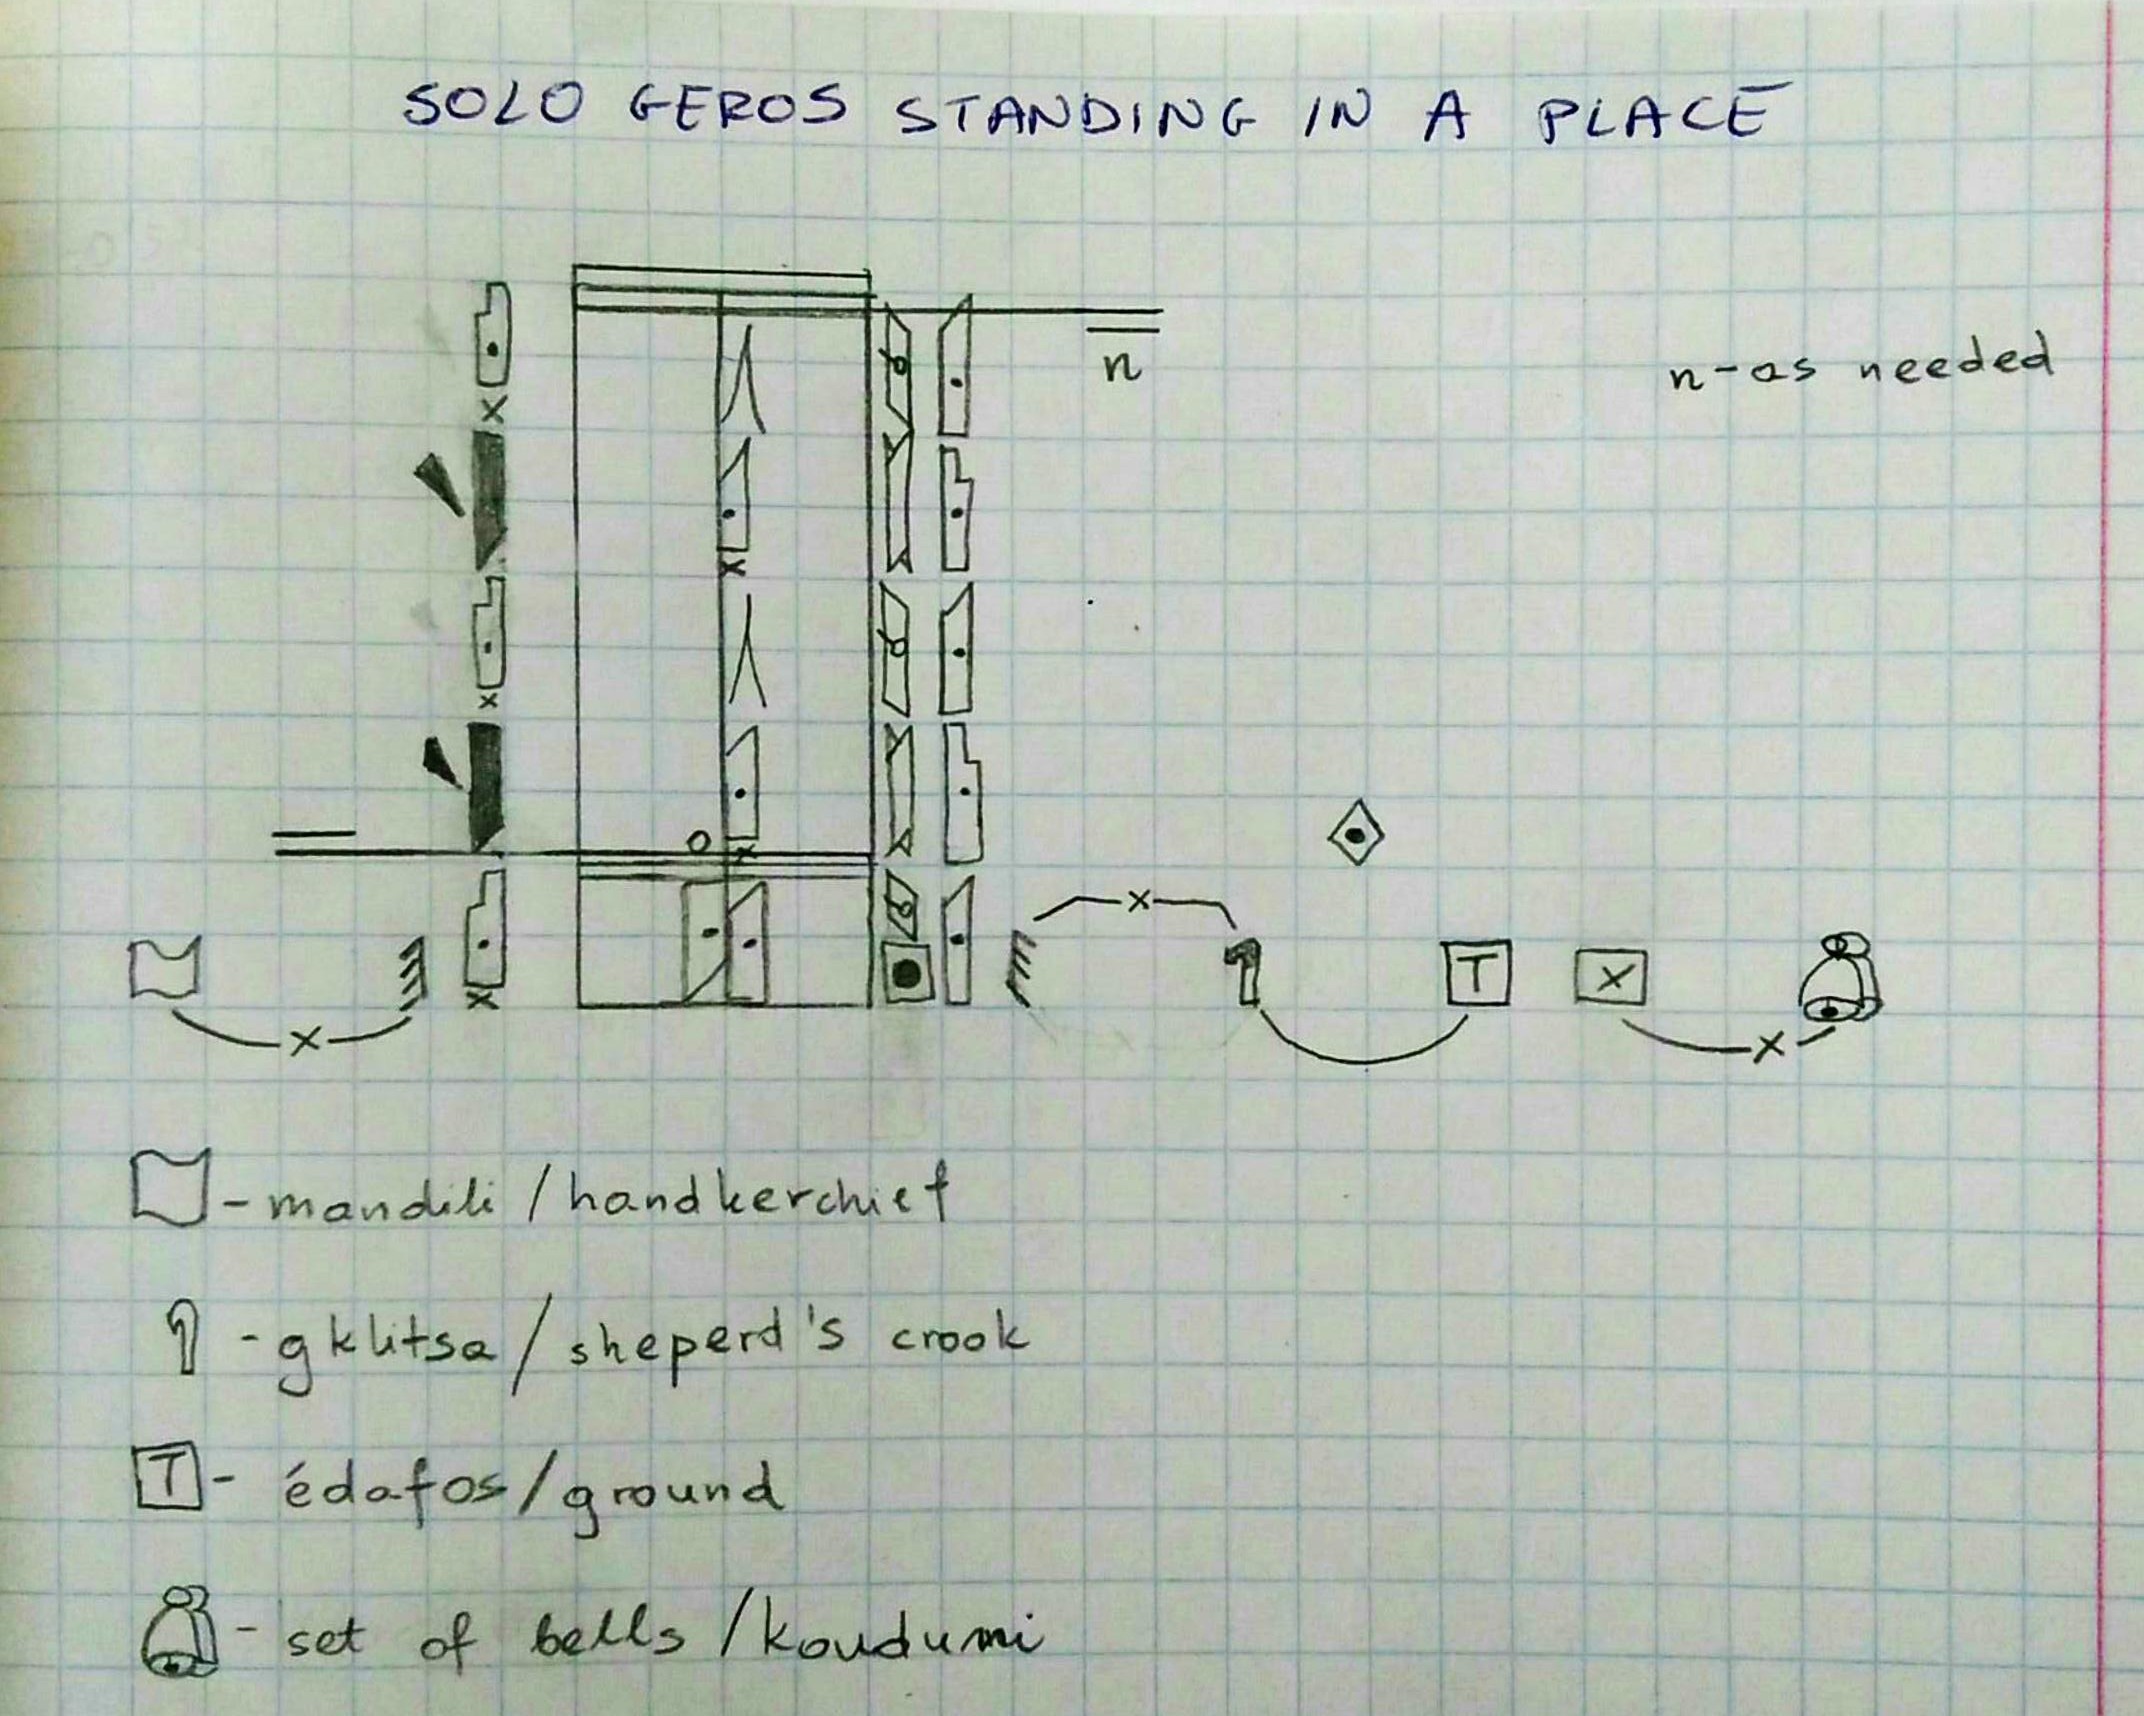 SOLO GEROS STANDING IN A PLACE
n
n-as needed
T
- mandili / handkerchief
- gklitsa / sheperd's crook
T - édafos / ground
- set of bells / koudumi